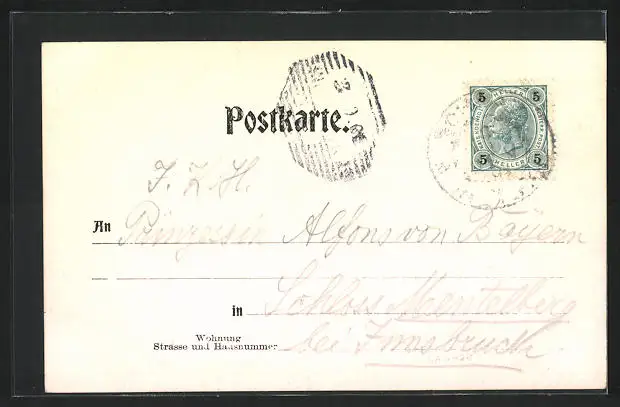 Postkarte.
5 HELLER 5
5 HELLER 5
I. K. H.
An Prinzessin Alfons von Bayern
in Schloss Mentelberg
Wohnung
Strasse und Hausnummer
bei Innsbruck